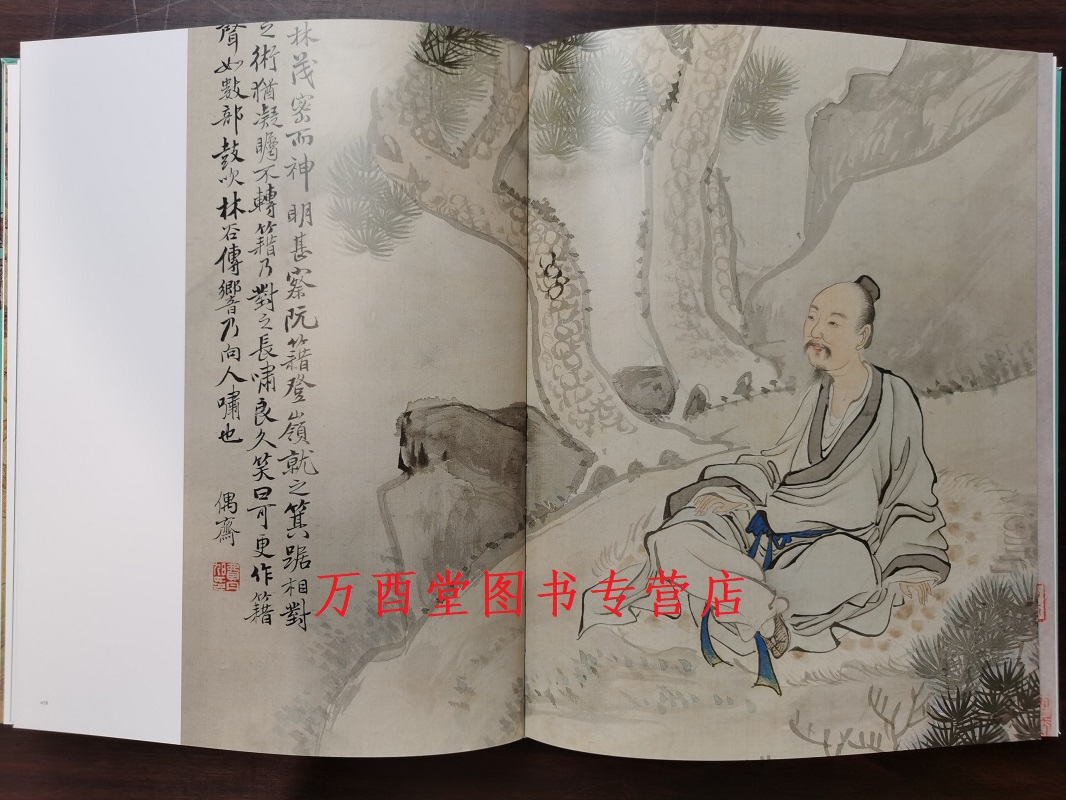 林茂密而神明甚察阮籍登嶺就之箕踞相對
之術猶凝矚不轉籍乃對之長嘯良久笑曰可更作籍
聲如數部鼓吹林谷傳響乃向人嘯也
偶齋
万酉堂图书专营店